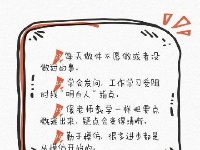 每天做件不愿做或者没
做过的事。
学会发问，工作学习受阻
时找“明白人”指点。
像老师教学一样把要点
概述出来，疑点会变得清晰。
勤于模仿，很多进步都是
从模仿开始的。